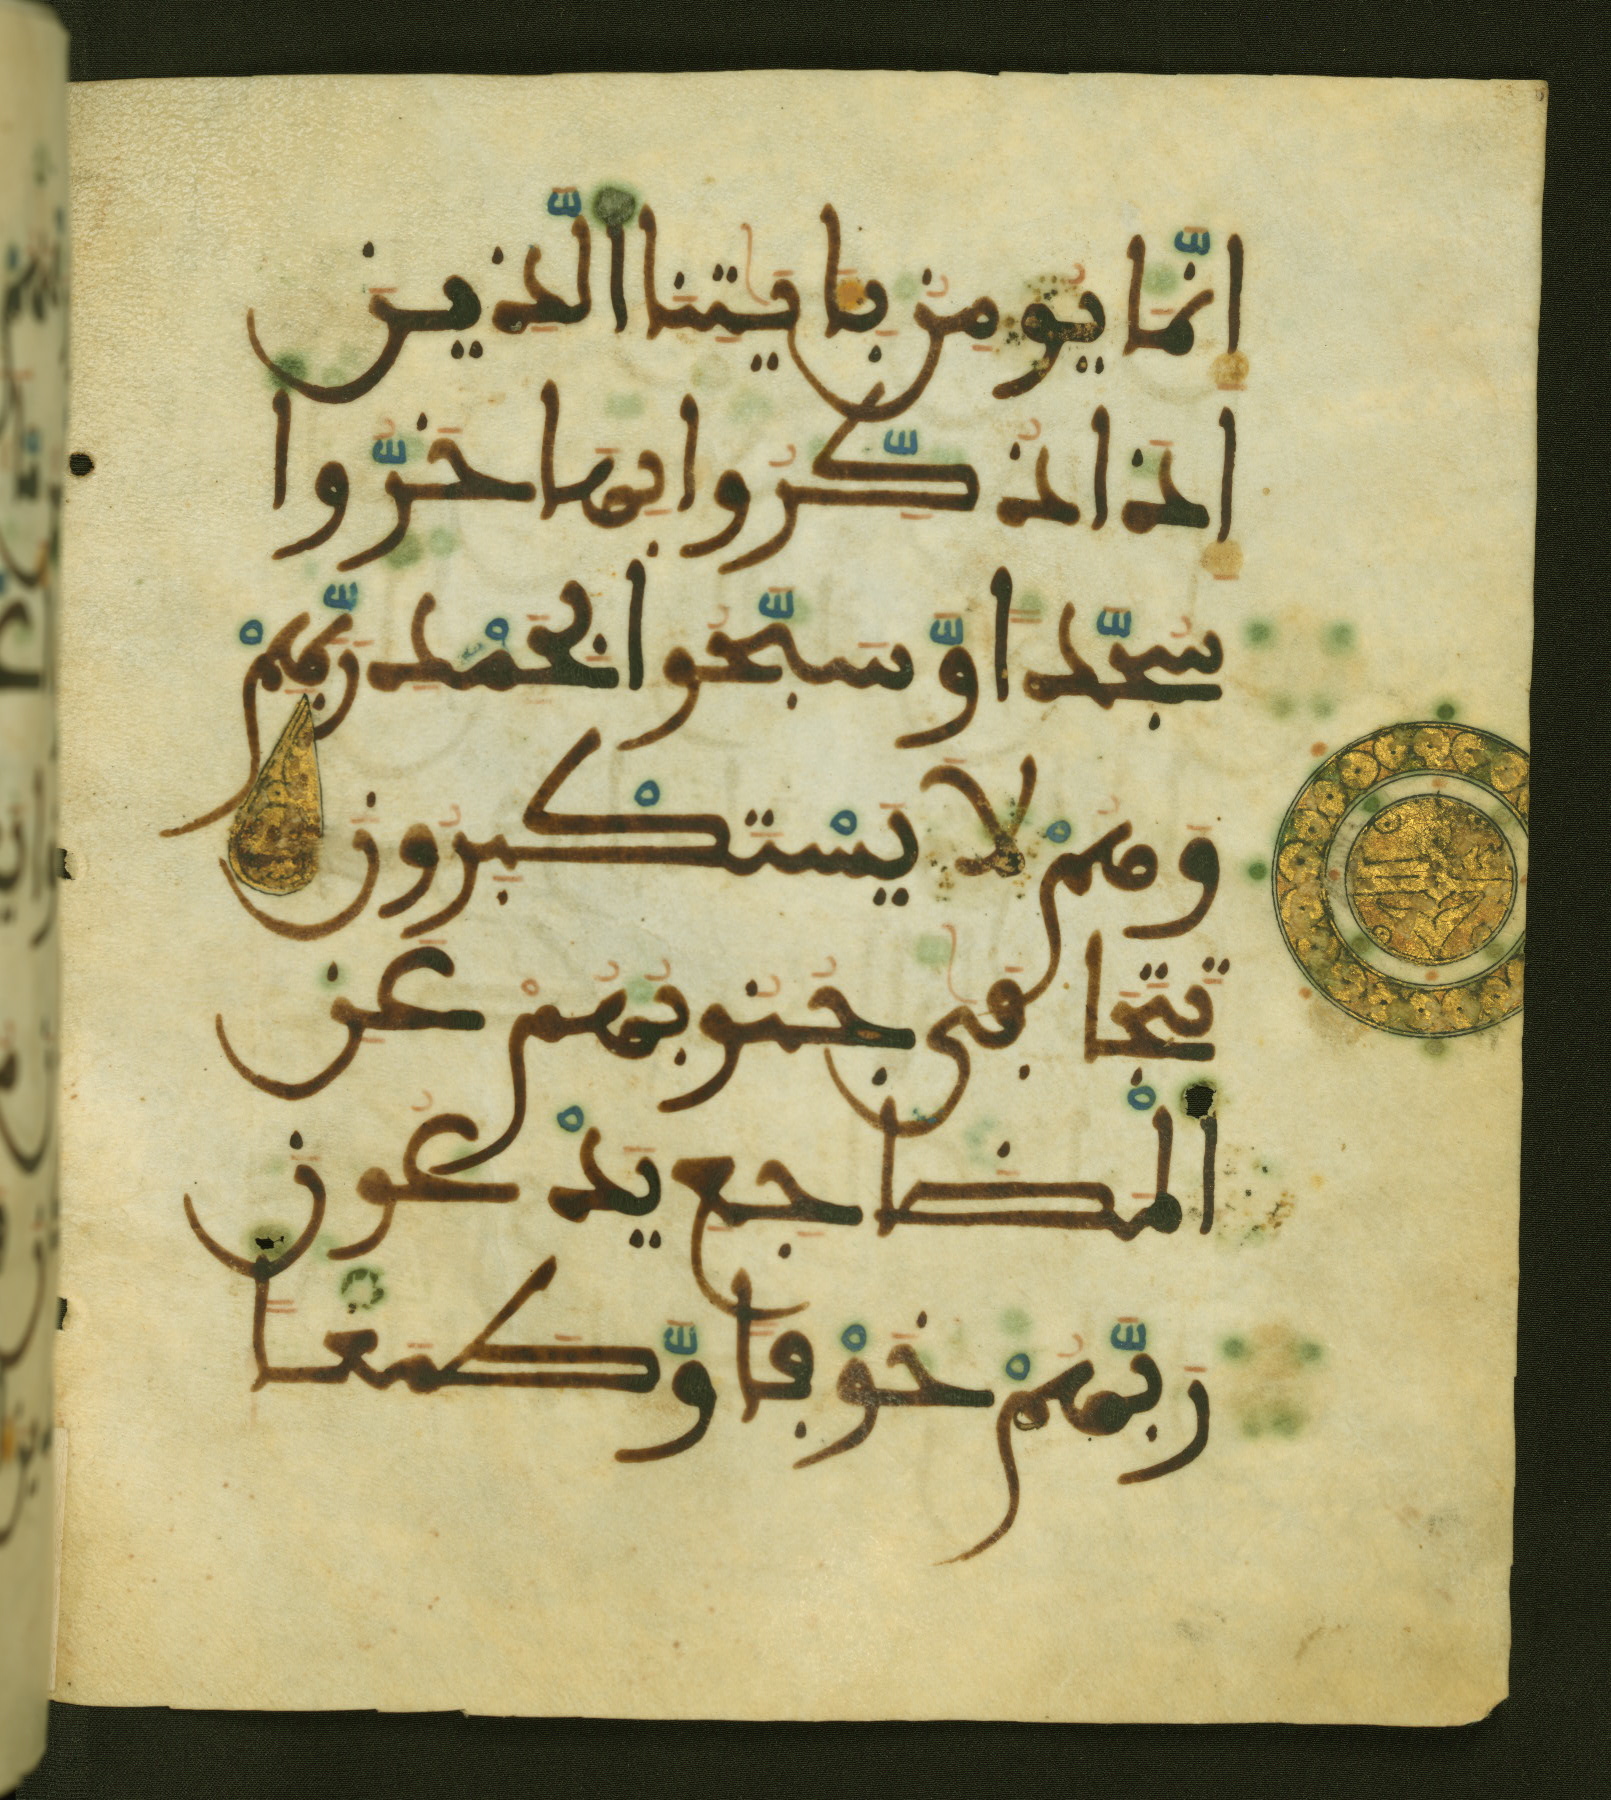 إِنَّمَا يُومِنُ بِـَٔايَٰتِنَا اَ۬لَّذِينَ
إِذَا ذُكِّرُواْ بِهَا خَرُّواْ
سُجَّداً وَّسَبَّحُواْ بِحَمْدِ رَبِّهِمْ
وَهُمْ لَا يَسْتَكْبِرُونَ
تَتَجَافَىٰ جُنُوبُهُمْ عَنِ
اِ۬لْمَضَاجِعِ يَدْعُونَ
رَبَّهُمْ خَوْفاً وَّطَمَعاً